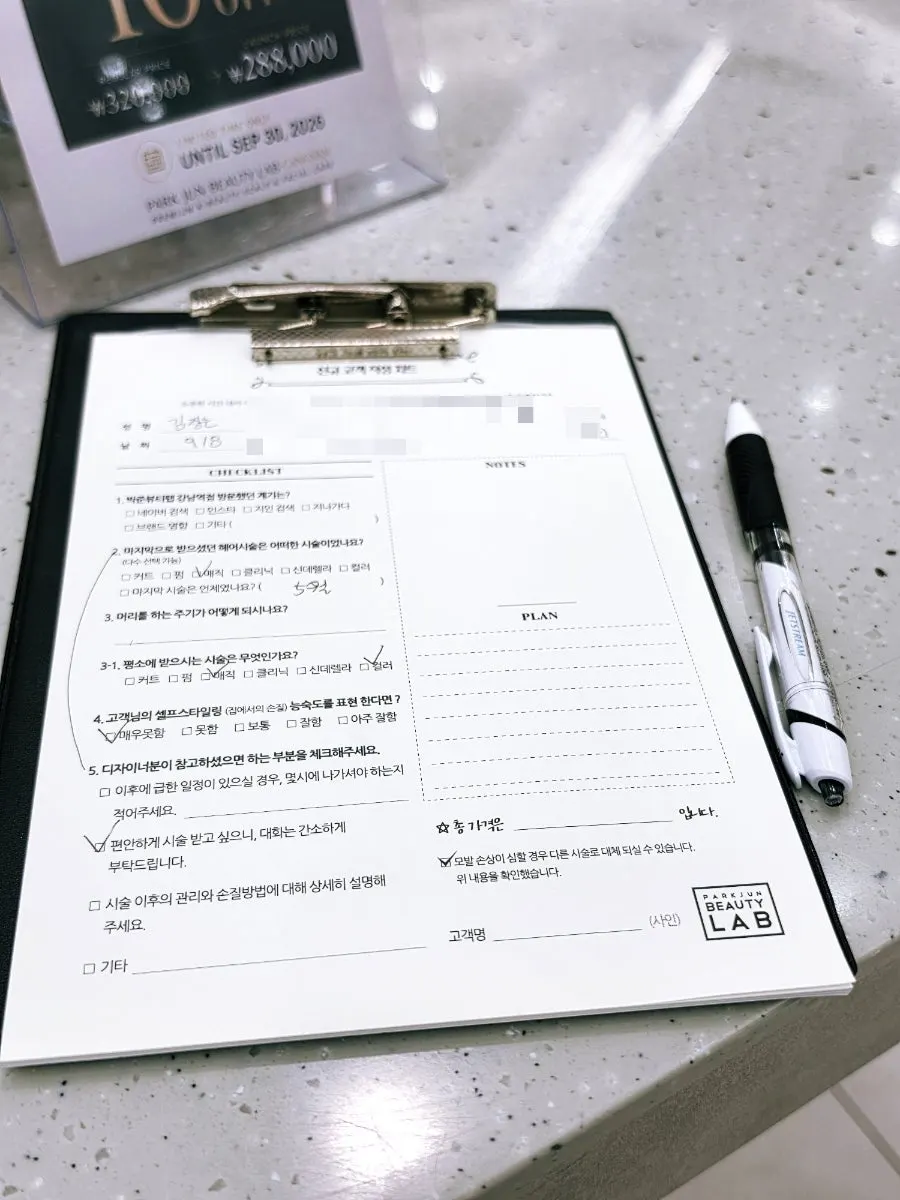 10
₩320,000
₩288,000
UNTIL SEP 30, 2026
PARK JUN BEAUTY LAB
성 명
날 짜 9/8
CHECKLIST
1. 박준뷰티랩 강남역점 방문했던 계기는?
□ 네이버 검색 □ 인스타 □ 지인 검색 □ 지나가다
□ 브랜드 명함 □ 기타 ( )
2. 마지막으로 받으셨던 헤어시술은 어떠한 시술이었나요?
(다수 선택 가능)
□ 커트 □ 펌 □ 매직 □ 클리닉 □ 신데렐라 □ 컬러
□ 마지막 시술은 언제였나요? ( 5월 )
3. 머리를 하는 주기가 어떻게 되시나요?
3-1. 평소에 받으시는 시술은 무엇인가요?
□ 커트 □ 펌 □ 매직 □ 클리닉 □ 신데렐라 □ 컬러
4. 고객님의 셀프스타일링 (집에서의 손질) 능숙도를 표현 한다면 ?
□ 매우못함 □ 못함 □ 보통 □ 잘함 □ 아주 잘함
5. 디자이너분이 참고하셨으면 하는 부분을 체크해주세요.
□ 이후에 급한 일정이 있으실 경우, 몇시에 나가셔야 하는지
적어주세요.
□ 편안하게 시술 받고 싶으니, 대화는 간소하게
부탁드립니다.
□ 시술 이후의 관리와 손질방법에 대해 상세히 설명해
주세요.
□ 기타
NOTES
PLAN
☆ 총 가격은 입니다.
□ 모발 손상이 심할 경우 다른 시술로 대체 되실 수 있습니다.
위 내용을 확인했습니다.
고객명 (사인)
PARKJUN
BEAUTY
LAB
JETSTREAM